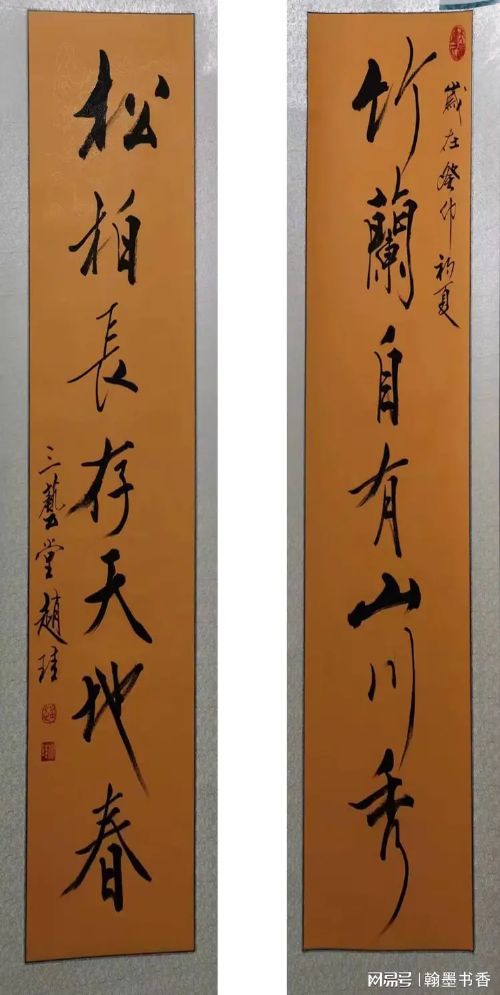 歲在癸卯初夏
竹蘭自有山川秀
松柏長存天地春
三藝堂趙珪
网易号 | 翰墨书香